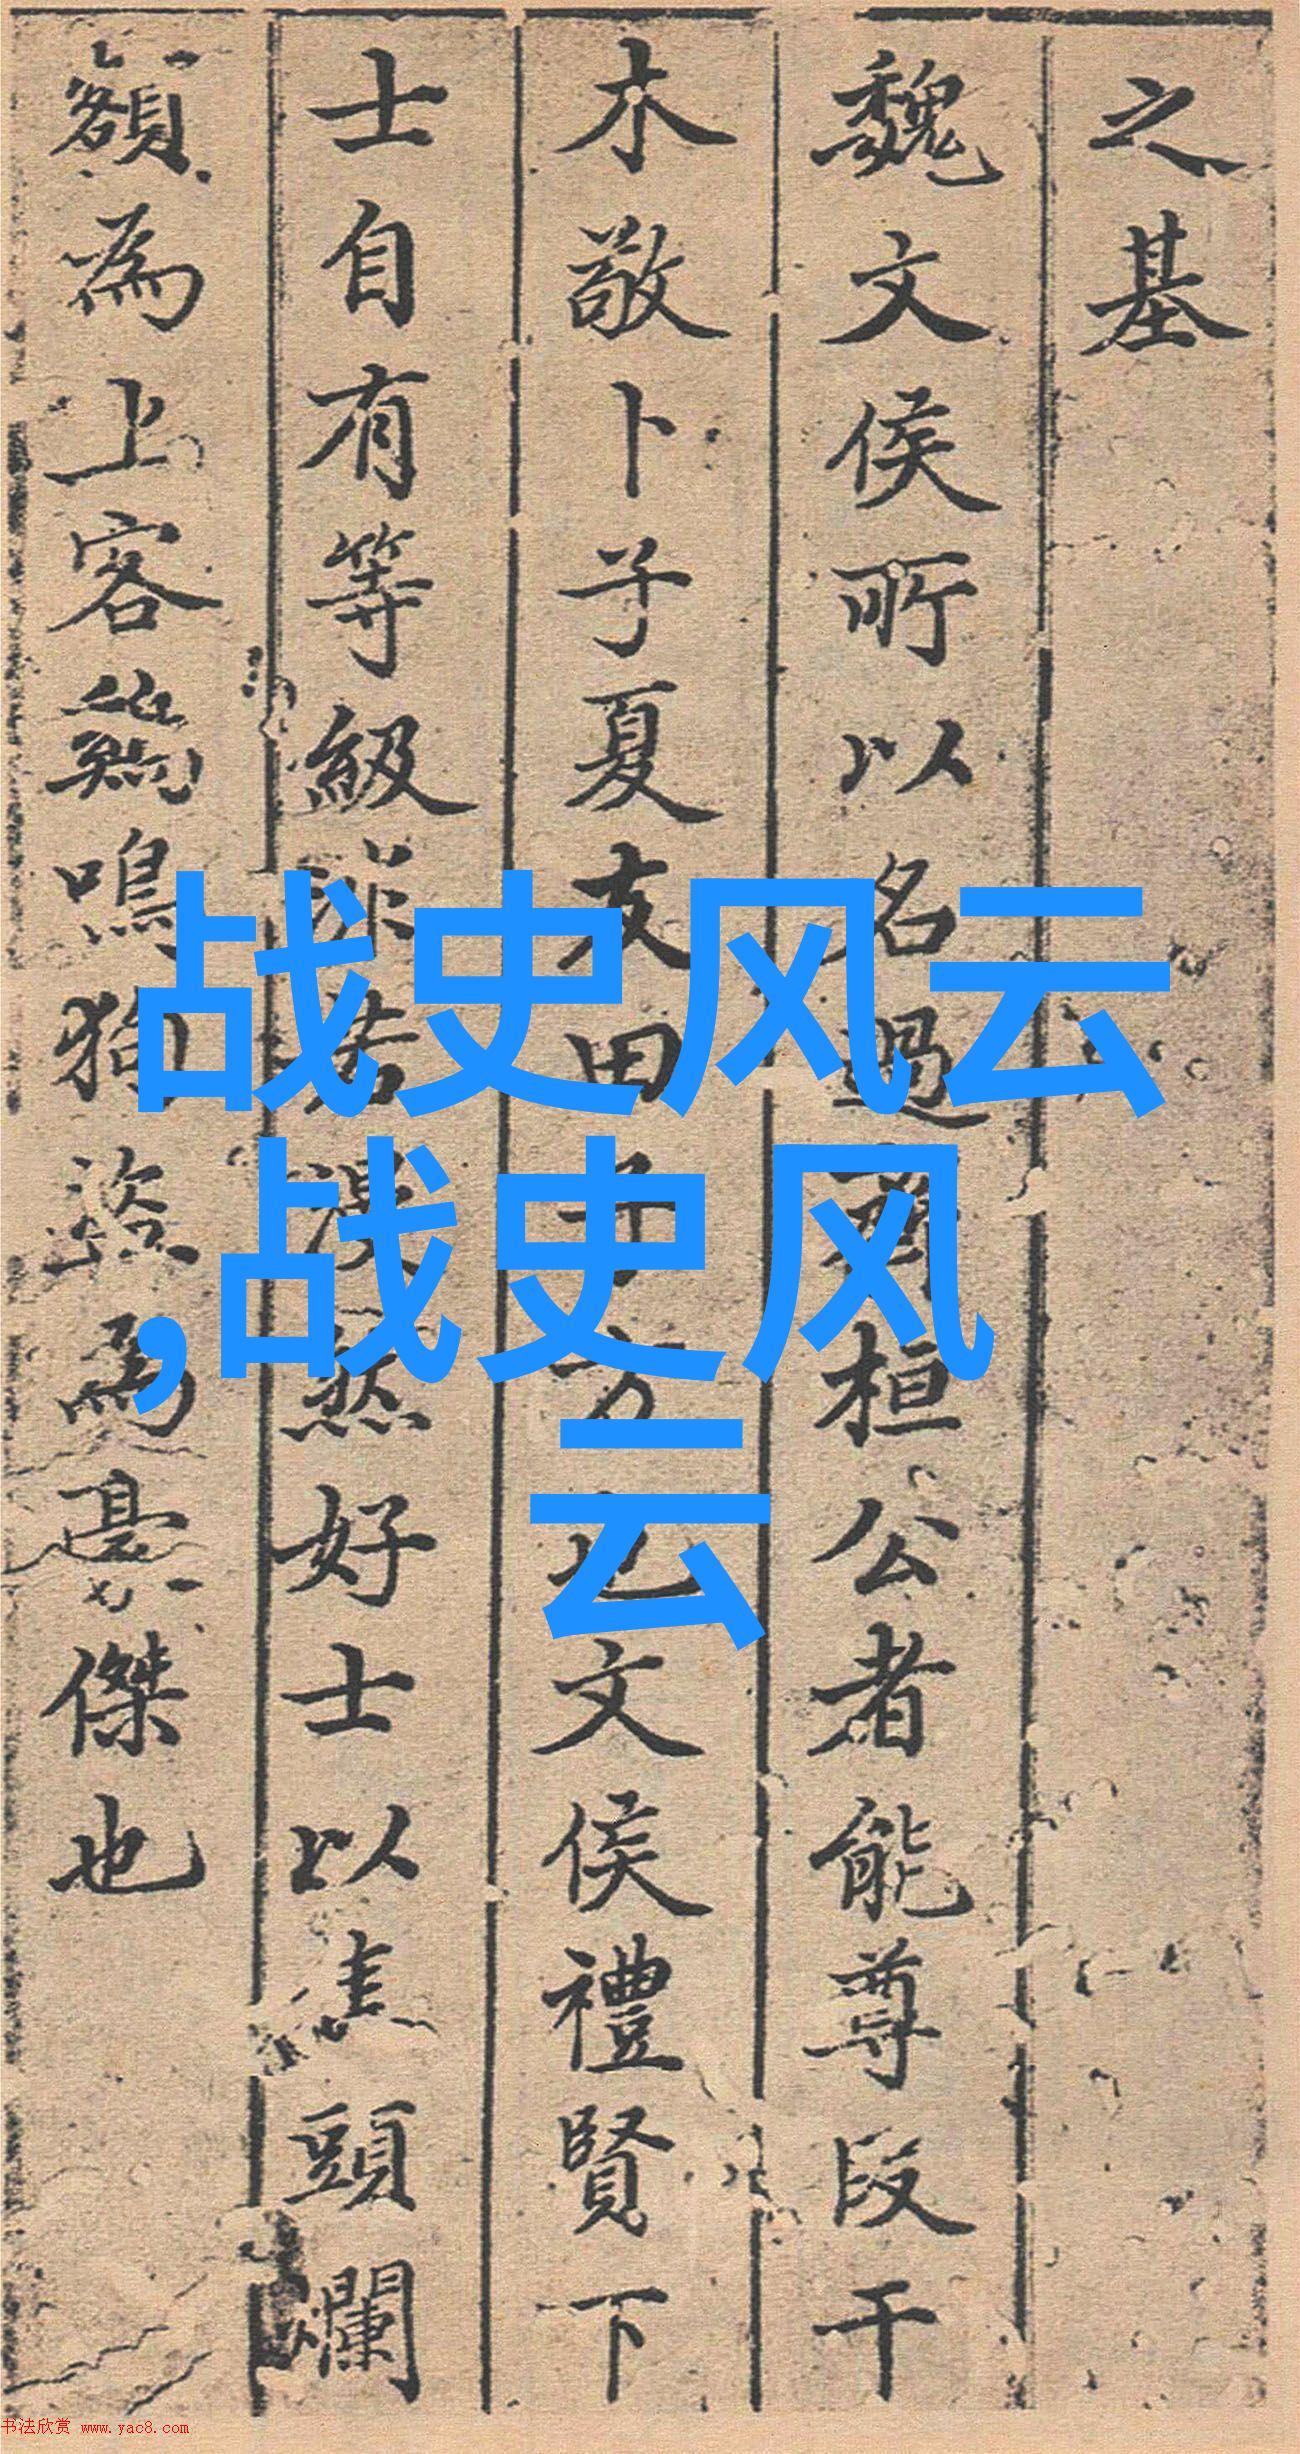 之基
魏文侯所以名過齊桓公者能尊段干
木敬卜子夏友田子方也文侯禮賢下
士自有等級非若漫然好士以焦頭爛
額為上客鷄鳴狗盜為豪傑也
战史风云
,战史风
云
书法欣赏 www.yac8.com